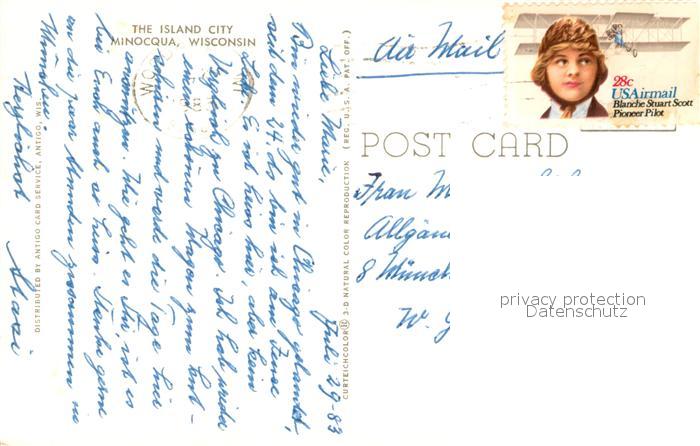 THE ISLAND CITY
MINOCQUA, WISCONSIN
Juli 29-83
Lb. Marie,
Bin wieder gut in Chicago gelandet,
seit dem 24. ds. bin ich am
Es ist heiss hier, aber kein
Vergleich zu Chicago. Ich hab wieder
einen
und werde die Tage hier
Wie geht es Dir, ist es
bei Euch auch so heiss. Denke gerne
an die paar Stunden zusammen in
München!
Herzlichst
DISTRIBUTED BY ANTIGO CARD SERVICE, ANTIGO, WIS.
CURTEICHCOLOR® 3-D NATURAL COLOR REPRODUCTION (REG. U.S.A. PAT. OFF.)
Air Mail
28c
USAirmail
Blanche Stuart Scott
Pioneer Pilot
POST CARD
Frau M
Allgäu
8 Münch
W. G
privacy protection
Datenschutz